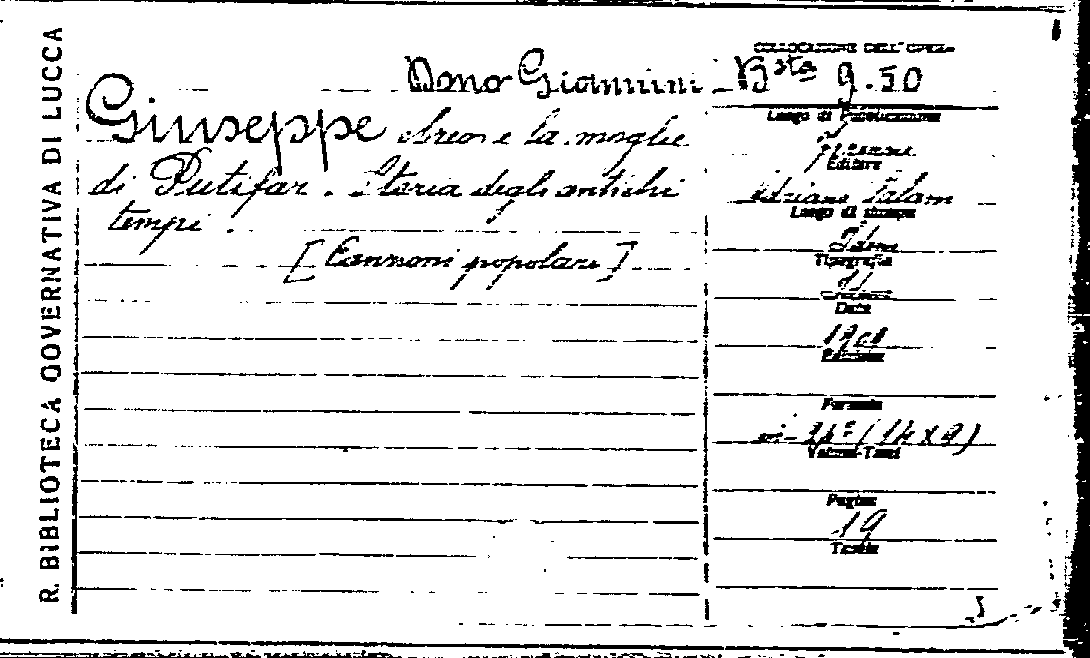 R. BIBLIOTECA GOVERNATIVA DI LUCCA
Dono Giannini
COLLOCAZIONE DELL'OPERA
Bsta 9.50
Giuseppe ebreo e la moglie
di Putifar. Storia degli antichi
tempi.
[Canzoni popolari]
Luogo di Pubblicazione
Firenze
Editore
Adriano Salani
Luogo di stampa
Idem
Tipografia
Id.
Data
1908
Edizione
Formato
in-24° (14 x 9)
Volumi-Tomi
Pagine
19
Tavole